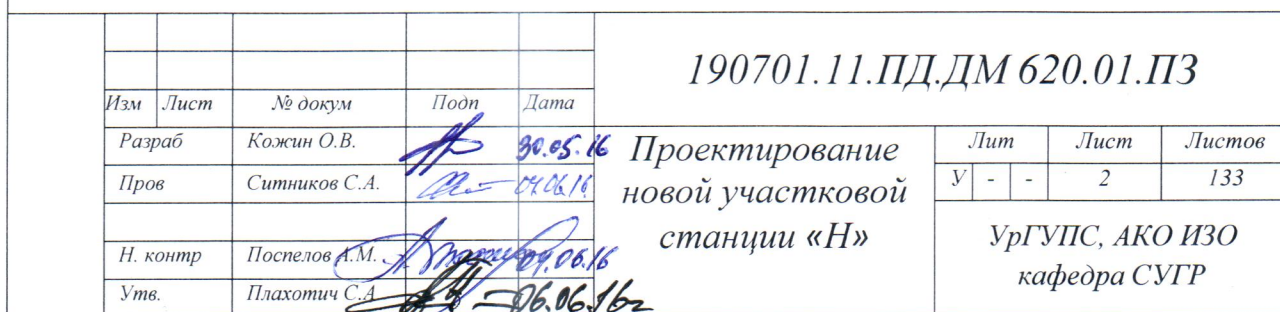 190701.11.ПД.ДМ 620.01.ПЗ
Изм Лист № докум Подп Дата
Разраб Кожин О.В. 30.05.16
Пров Ситников С.А. 04.06.16
Н. контр Поспелов А.М. 09.06.16
Утв. Плахотич С.А 06.06.16г
Проектирование
новой участковой
станции «Н»
Лит Лист Листов
У - - 2 133
УрГУПС, АКО ИЗО
кафедра СУГР